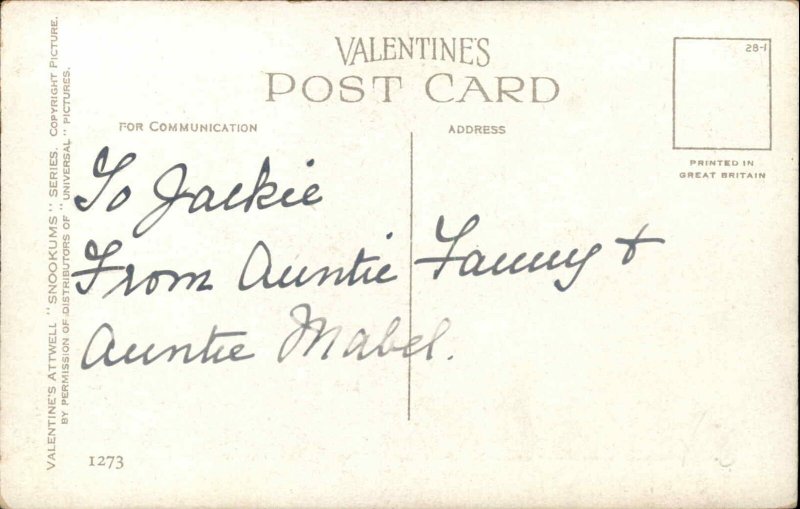 VALENTINE'S
POST CARD
28-1
FOR COMMUNICATION
ADDRESS
PRINTED IN
GREAT BRITAIN
VALENTINE'S ATTWELL "SNOOKUMS" SERIES. COPYRIGHT PICTURE.
BY PERMISSION OF DISTRIBUTORS OF "UNIVERSAL" PICTURES.
To Jackie
From Auntie Fanny &
Auntie Mabel.
1273